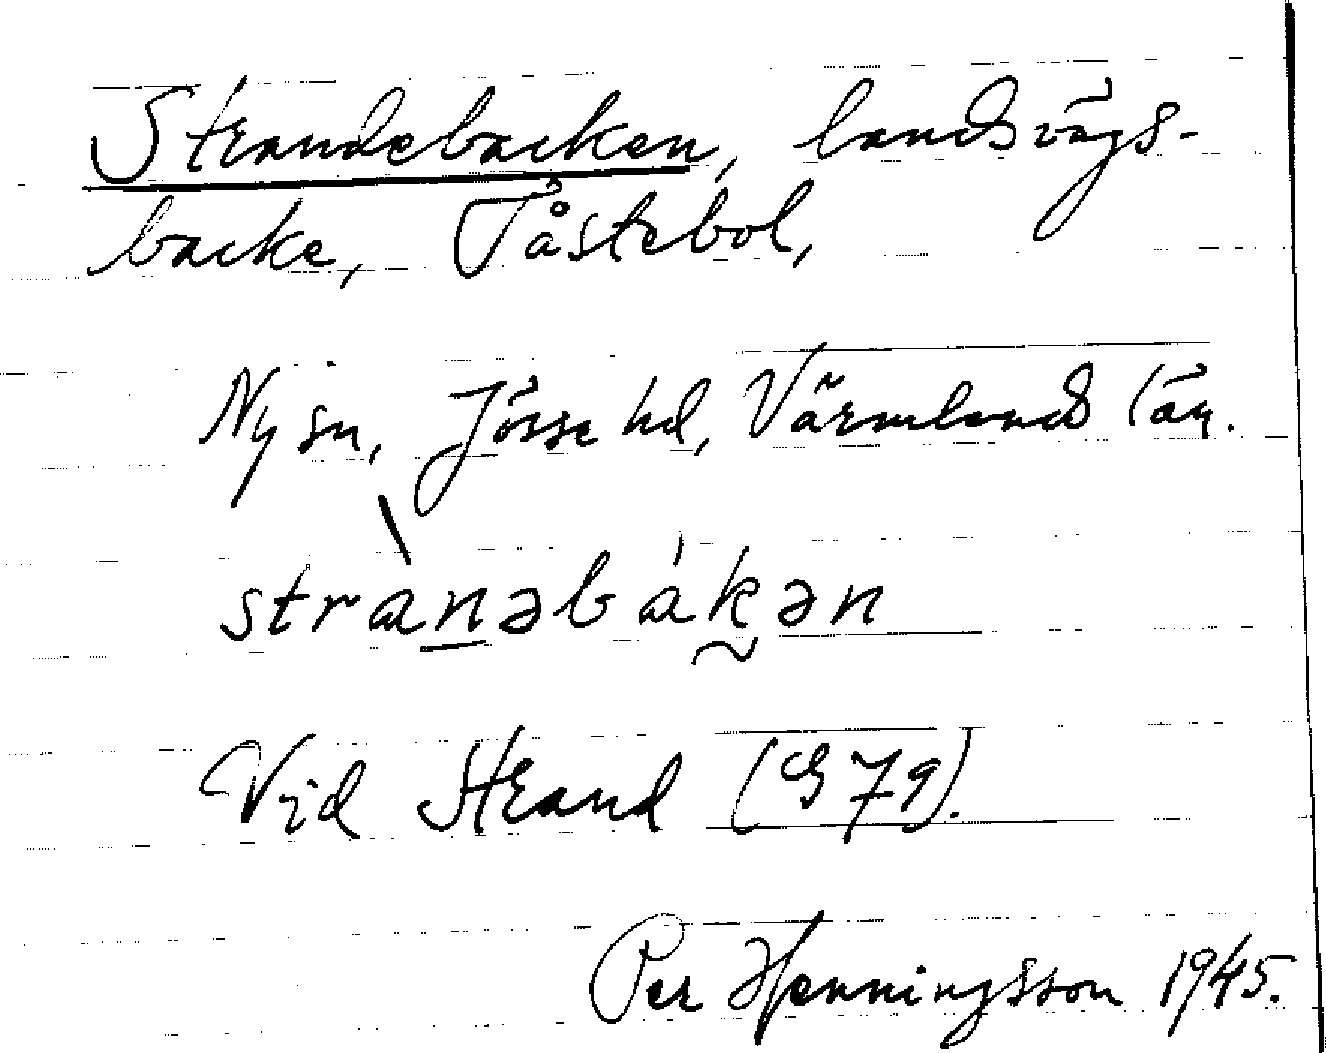 Strandebacken, landsvägs-
backe, Tåstebol,
Ny sn, Jösse hd, Värmlands län.
strànəbákən
Vid Strand (G 79).
Per Henningsson 1945.